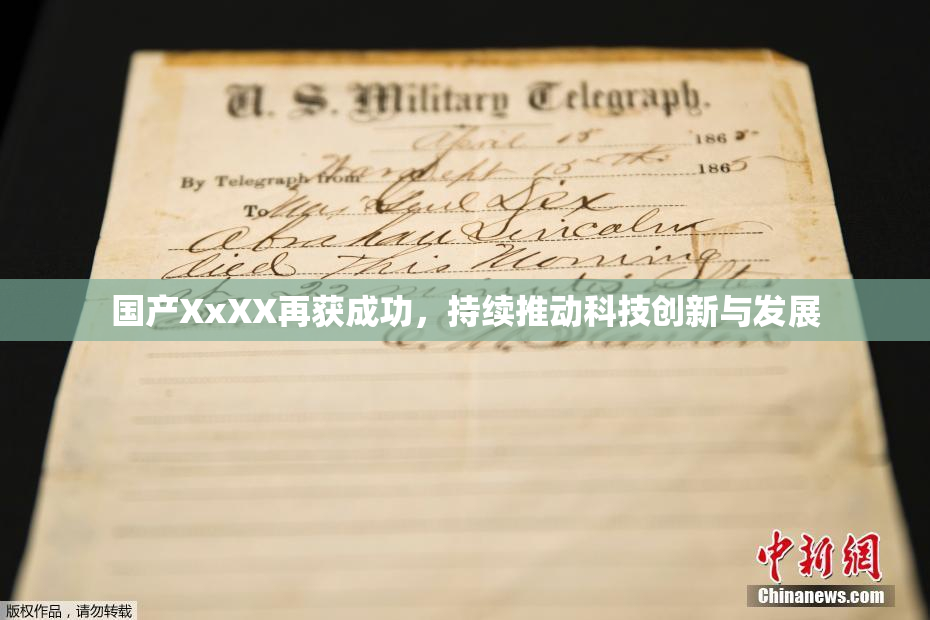 U. S. Military Telegraph.
April 15 1865
By Telegraph from War Dept 15th 1865
To Maj Genl Dix
Abraham Lincoln
died This Morning
22 minutes after
国产XxXX再获成功，持续推动科技创新与发展
E. M. Stanton
中新网
Chinanews.com
版权作品，请勿转载